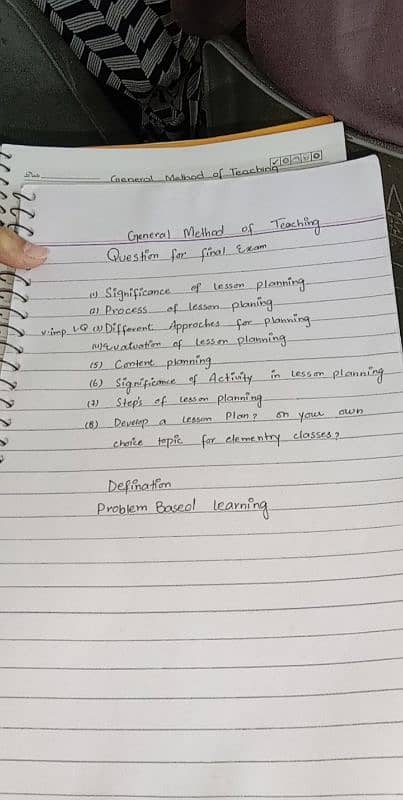 General Method of Teaching
General Method of Teaching
Question for final Exam
(1) Significance of lesson planning
(2) Process of lesson planing
v.imp LQ (3) Different Approches for planning
(4) Evaluation of lesson planning
(5) Content planning
(6) Significance of Activity in lesson planning
(7) Steps of lesson planning
(8) Develop a lesson Plan? on your own
choice topic for elementry classes?
Defination
Problem Based learning